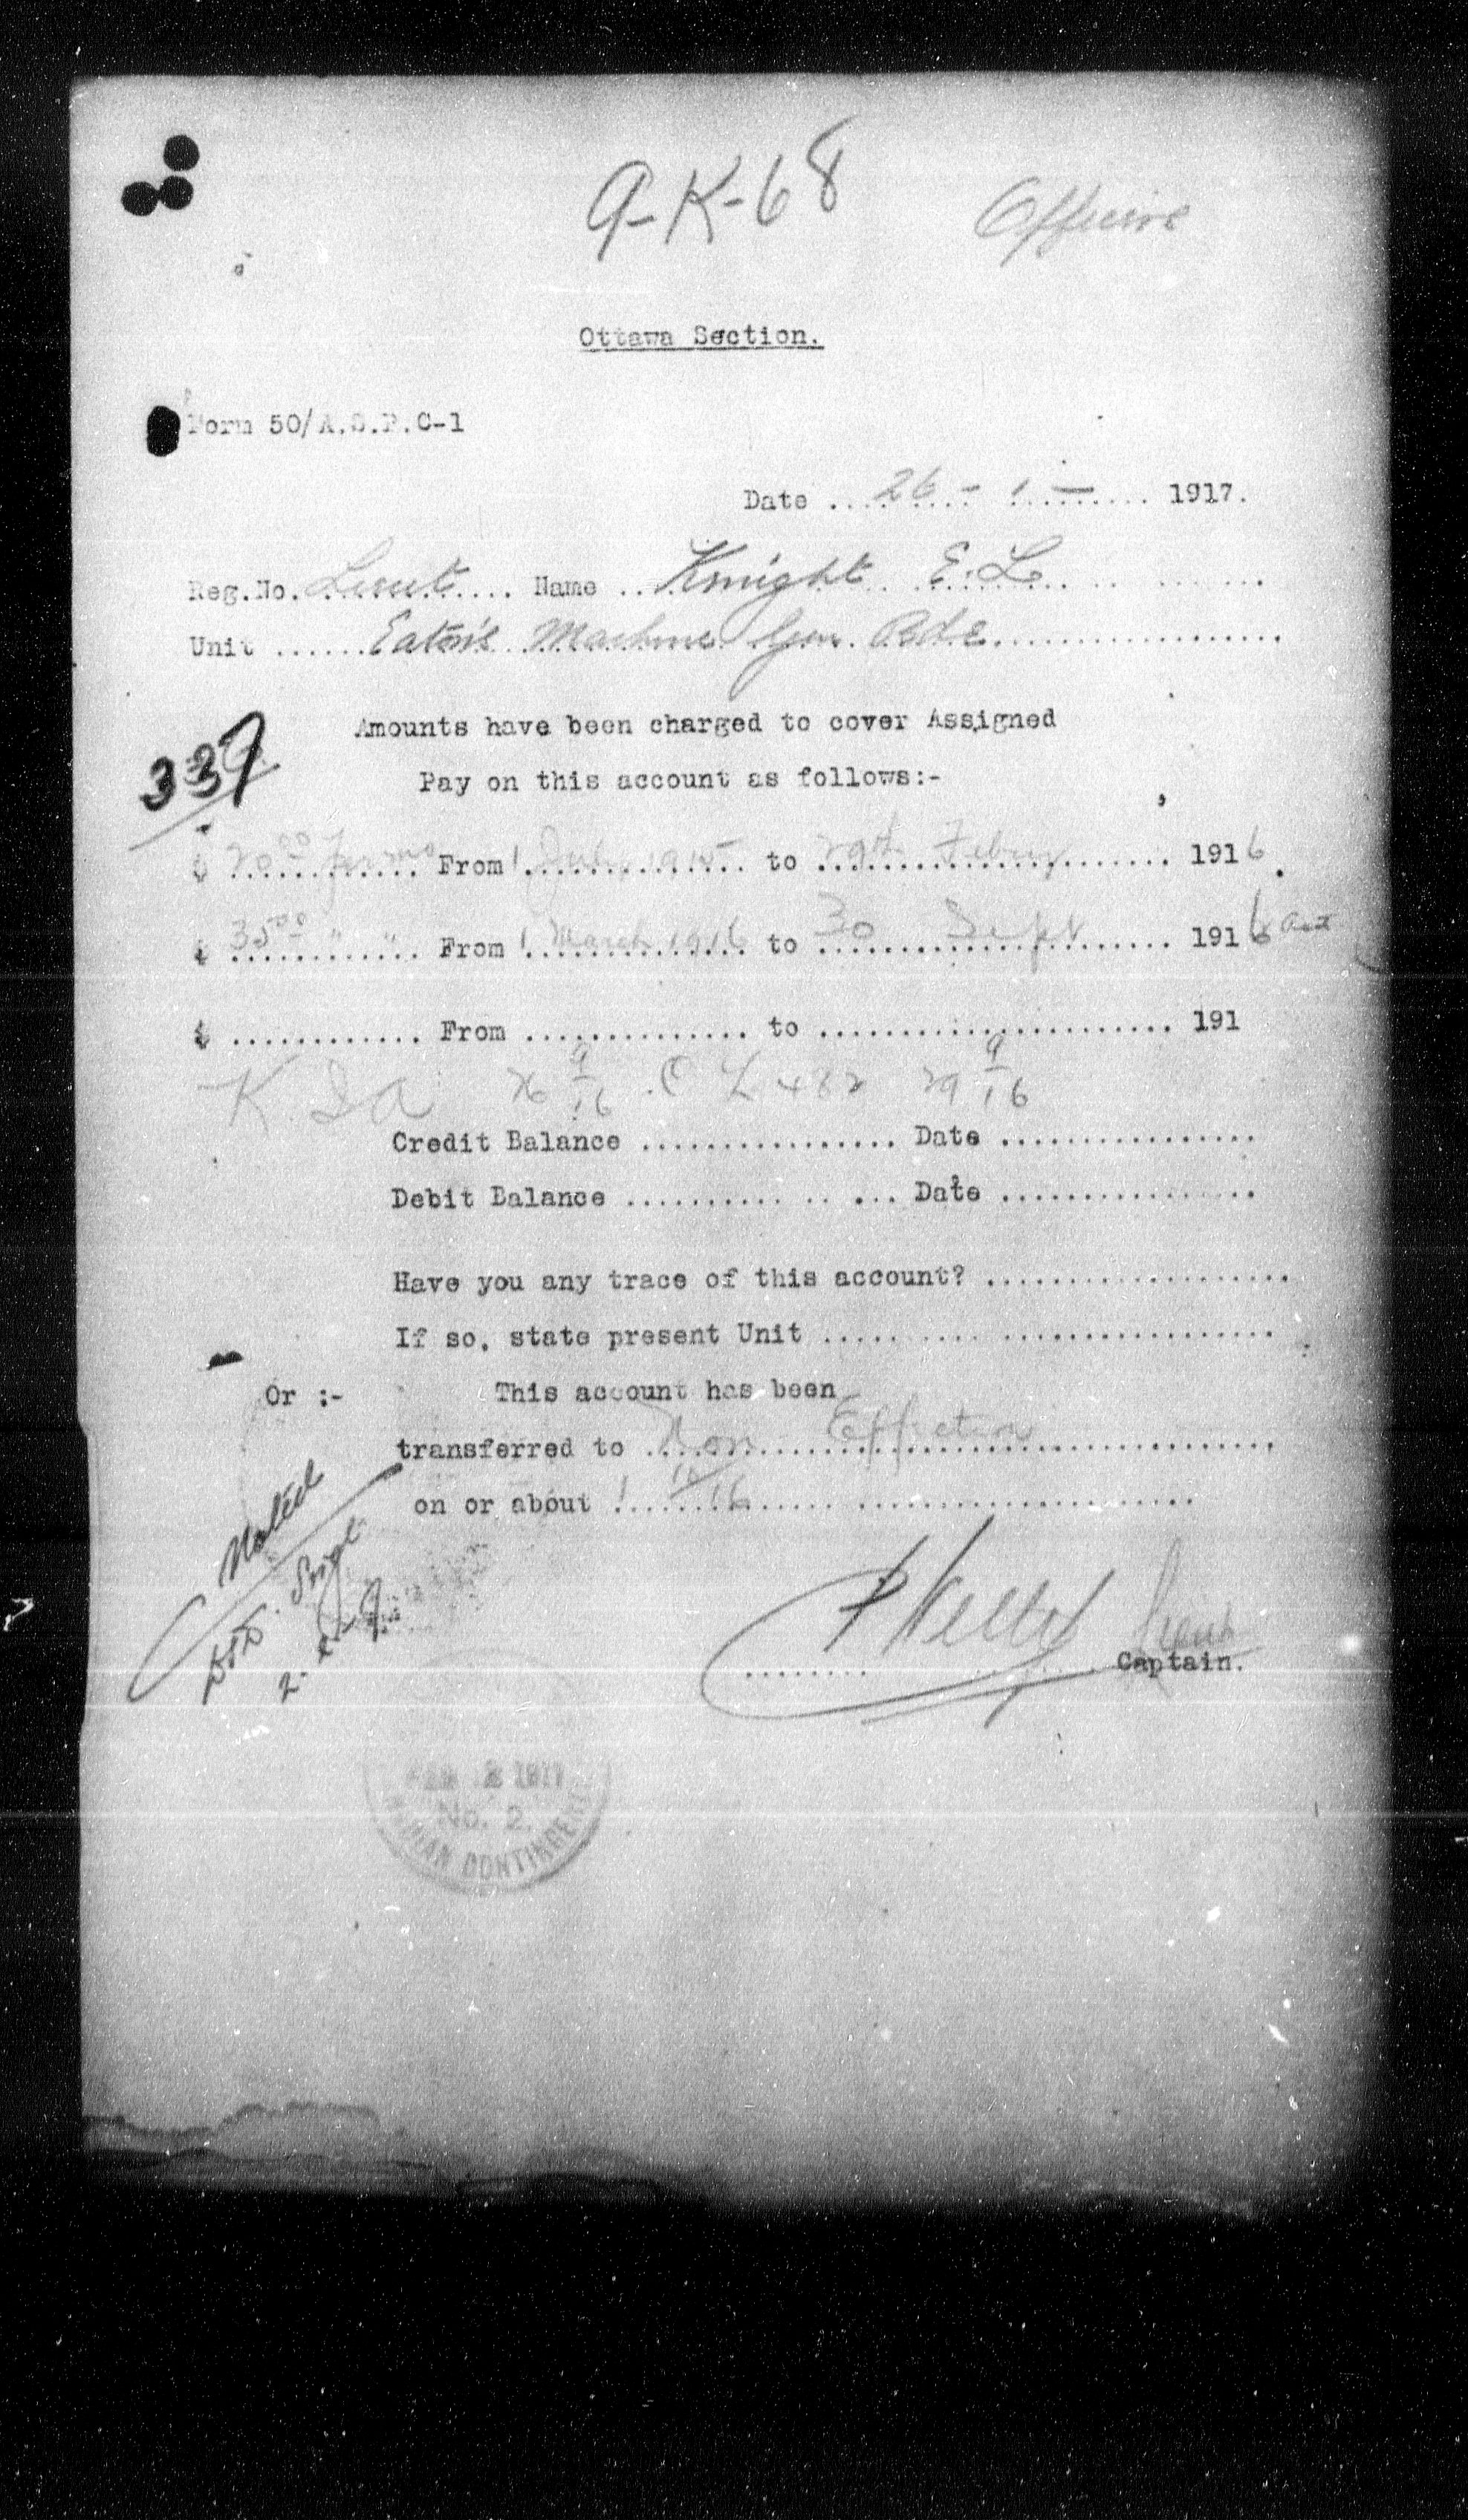 9-K-68
Ottawa Section.
Form 50/A.S.P.C-1
Date .... 26 - 1 - ......... 1917.
Reg.No. Lieut .... Name .. Knight E. L. ......
Unit ...... Eaton's Machine Gun Bde ..................
Amounts have been charged to cover Assigned
337
Pay on this account as follows:-
$ 20 00 per mo From 1 July 1915 to 29th Febry 1916.
$ 35 00 " " From 1 March 1916 to 30 Sept 1916
$ ............ From .............. to ...................... 191
K. I A 26 9/16 . C L 482 29 9/16
Credit Balance ................ Date ................
Debit Balance .......... .. ... Date ................
Have you any trace of this account? ...................
If so, state present Unit ..... .... .................
Or :- This account has been
transferred to Non Effective
on or about 1 10/16
Noted
2.2.17
Kelly Lieut
Captain.
2 1917
No. 2.
DIAN CONTINGENT